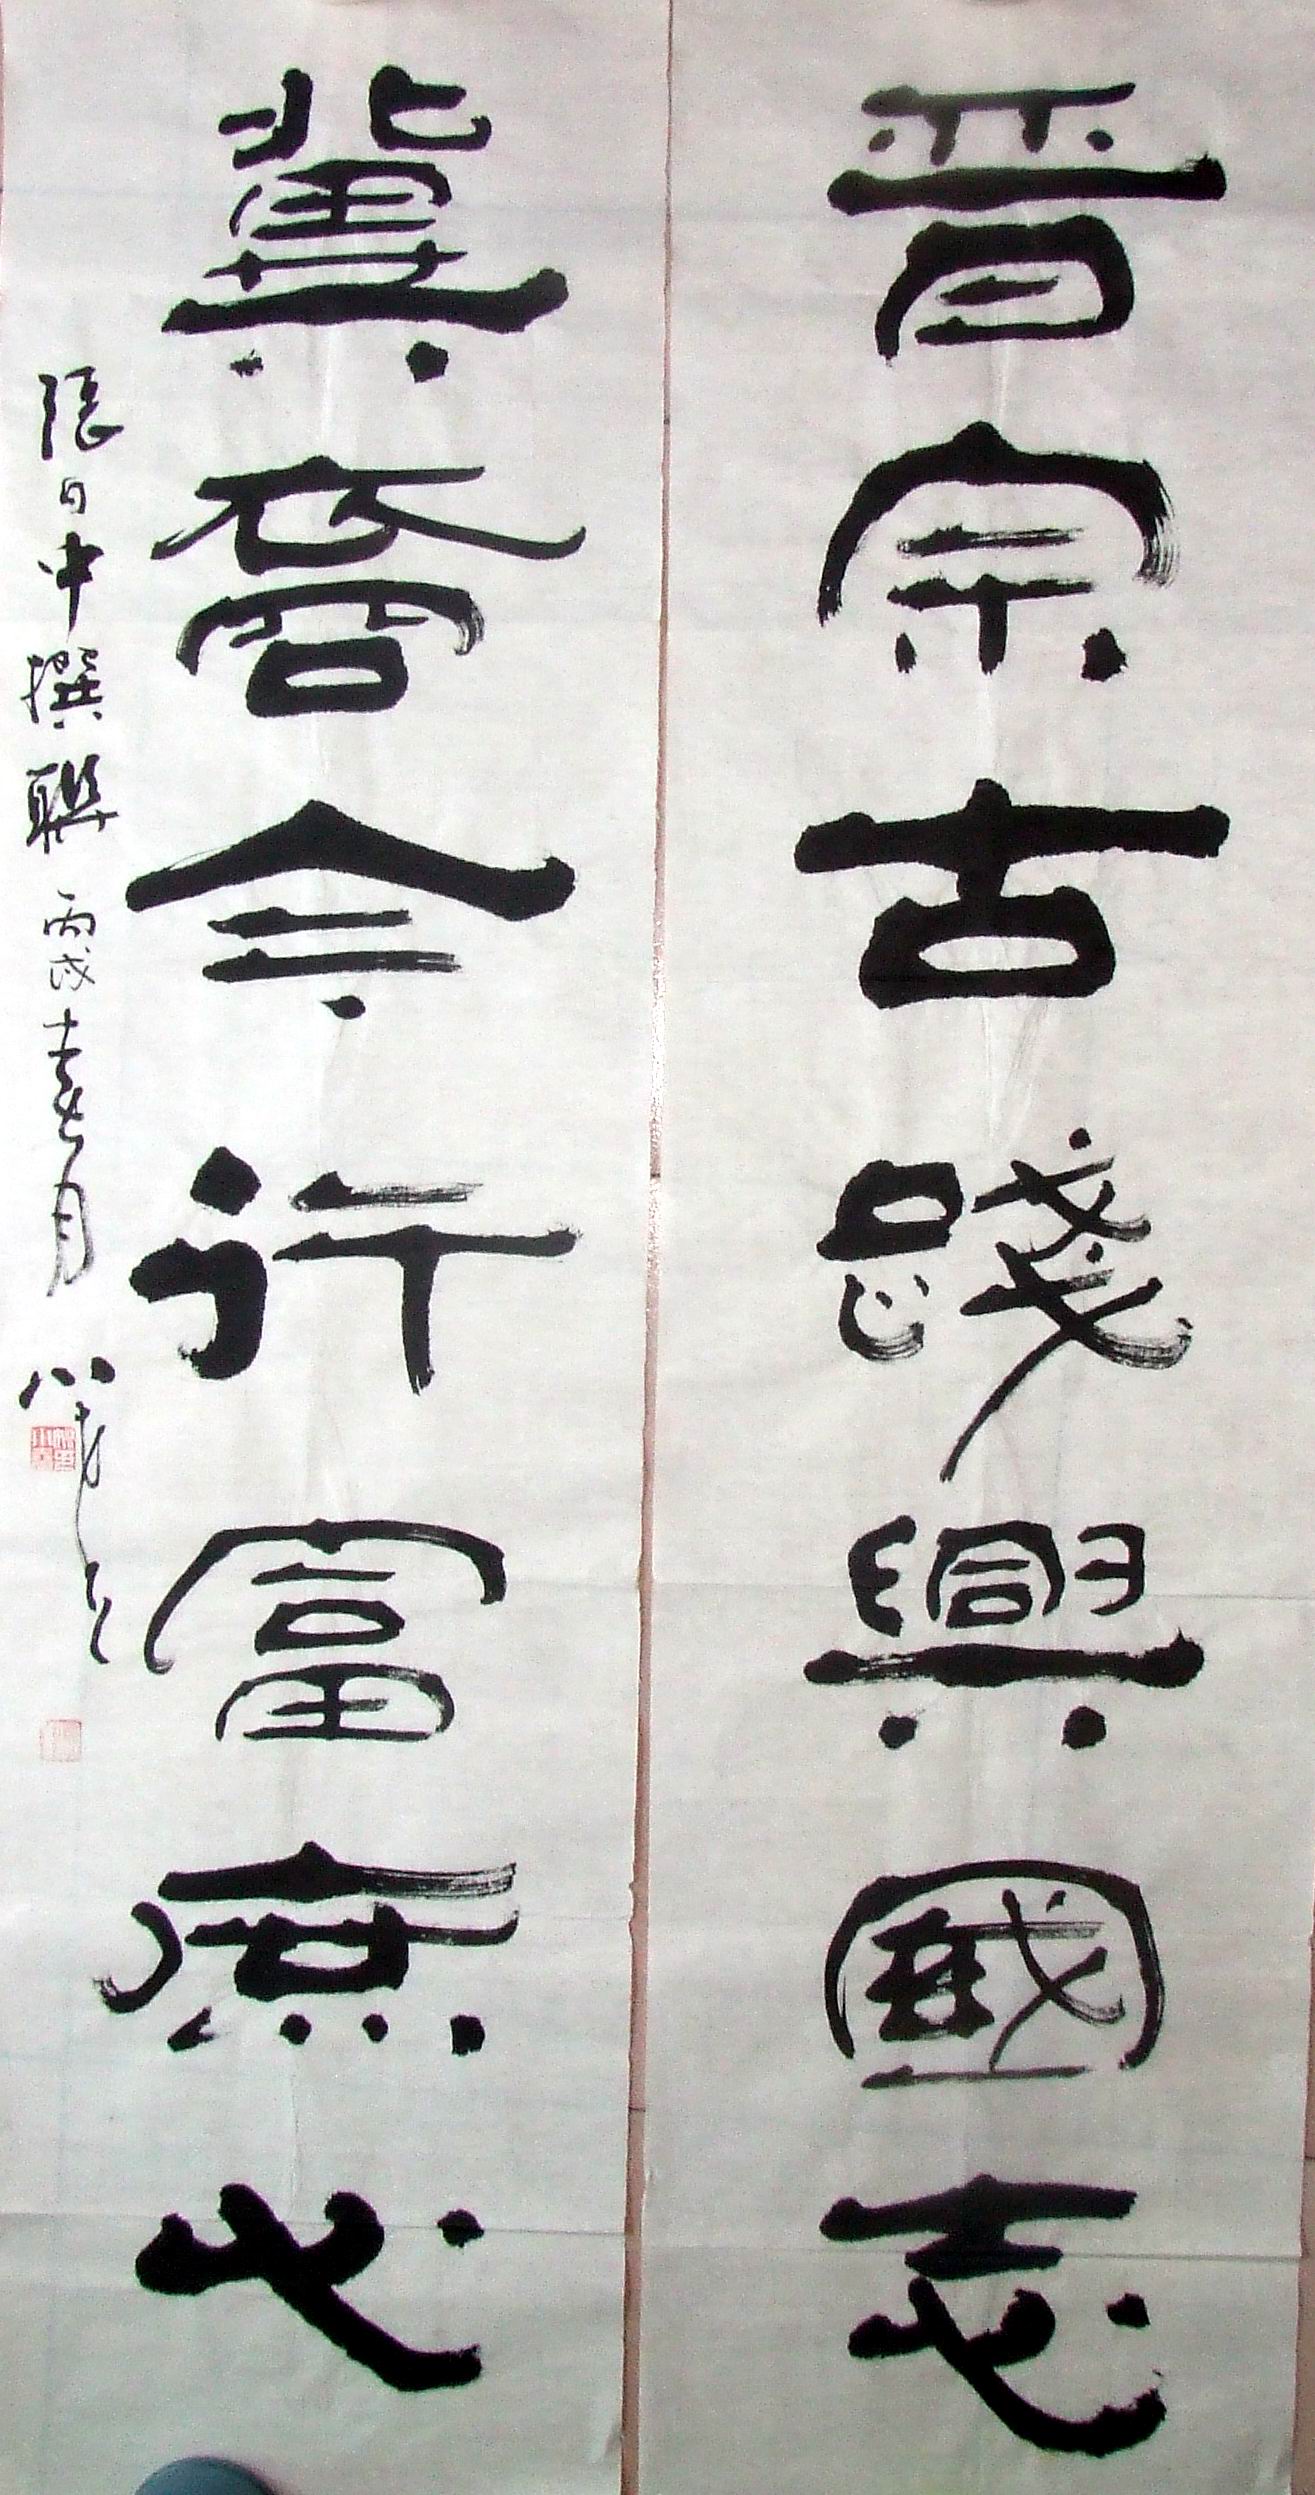 晋宗古踐興國志
冀裔今行富庶心
張日中撰聯 丙戌春月